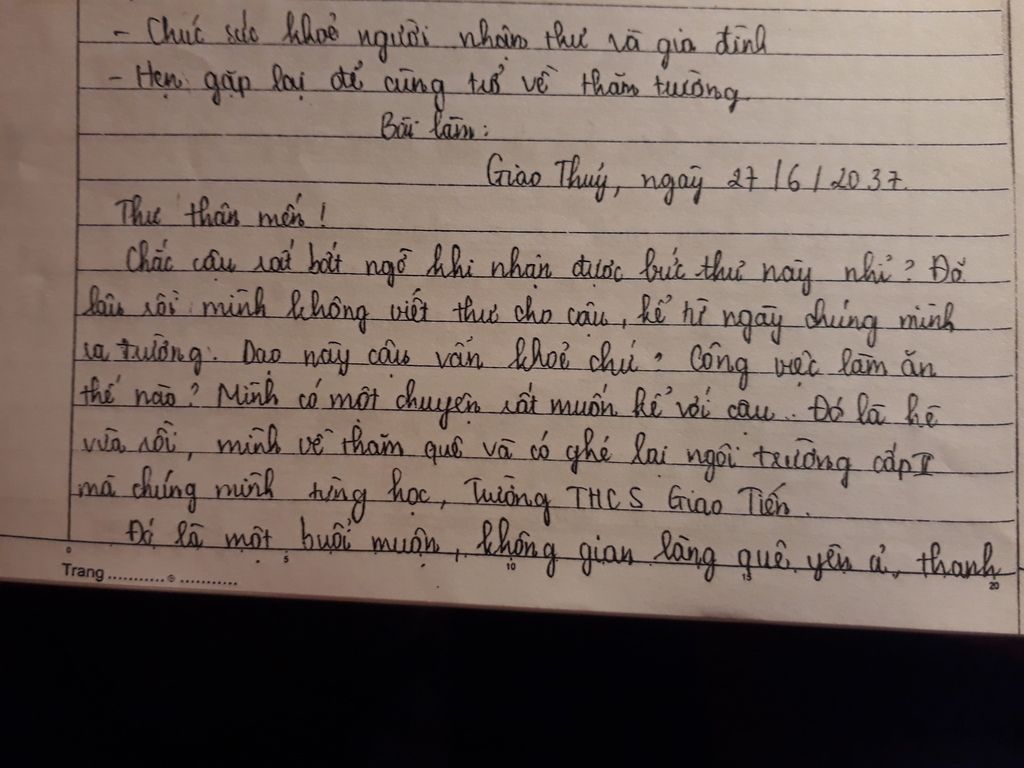 - Chúc sức khoẻ người nhận thư và gia đình
- Hẹn gặp lại để cùng trở về thăm trường
Bài làm:
Giao Thuỷ, ngày 27/6/2037.
Thư thân mến!
Chắc cậu rất bất ngờ khi nhận được bức thư này nhỉ? Đã
lâu rồi mình không viết thư cho cậu, kể từ ngày chúng mình
ra trường. Dạo này cậu vẫn khoẻ chứ? Công việc làm ăn
thế nào? Mình có một chuyện rất muốn kể với cậu. Đó là hè
vừa rồi, mình về thăm quê và có ghé lại ngôi trường cấp II
mà chúng mình từng học, Trường THCS Giao Tiến.
Đó là một buổi muộn, không gian làng quê yên ả, thanh
0 5 10 15 20
Trang ...........e ...........